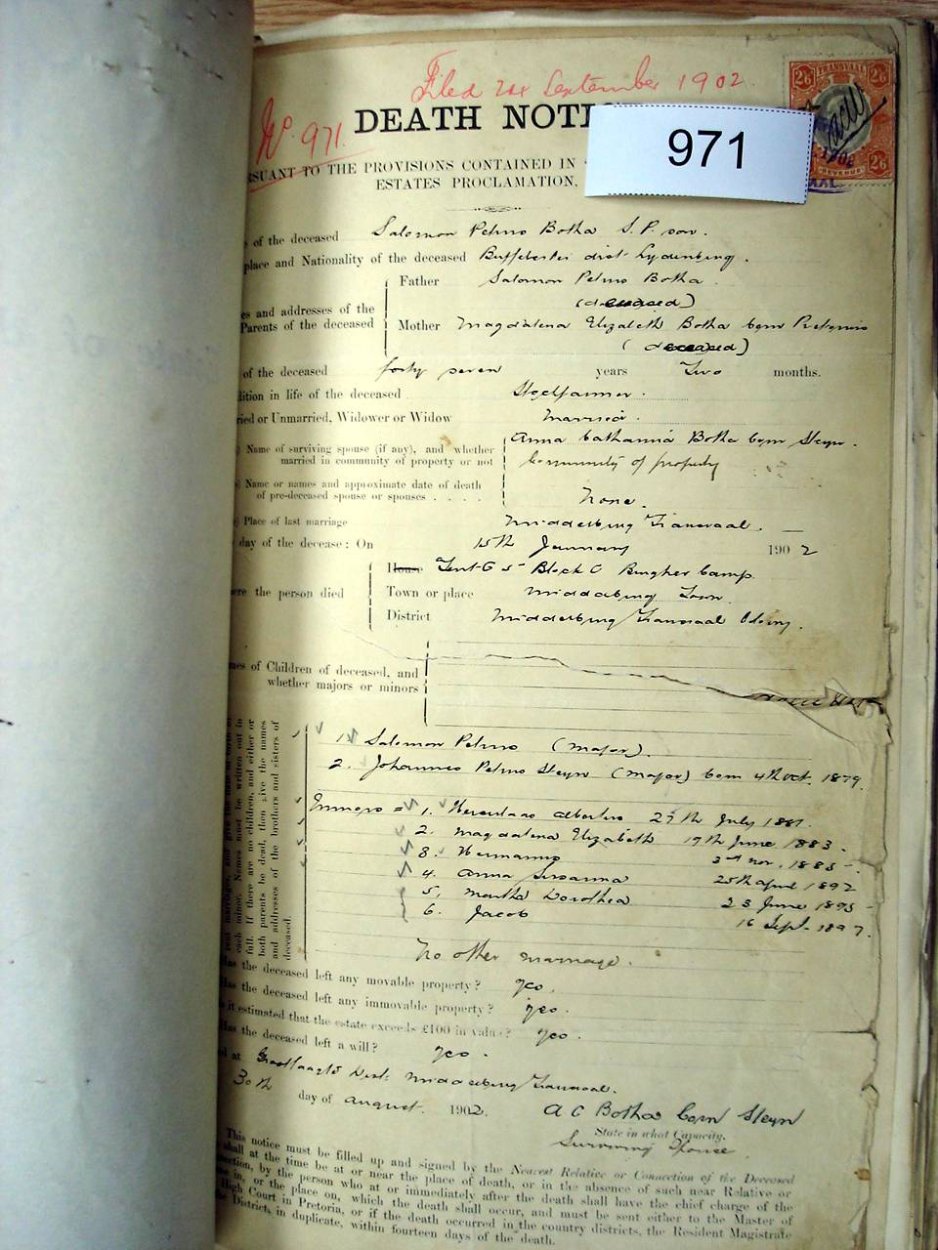 Filed September 1902.
No. 971.
DEATH NOTI
971
2/6 TRANSVAAL 2/6
REVENUE 2/6
RSUANT TO THE PROVISIONS CONTAINED IN
ESTATES PROCLAMATION,
of the deceased Salomon Petrus Botha S. P. son.
place and Nationality of the deceased dist Lydenburg.
es and addresses of the
Parents of the deceased
Father Salomon Petrus Botha
(deceased)
Mother Magdalena Elizabeth Botha born Pretorius
(deceased)
of the deceased forty seven years Two months.
dition in life of the deceased Stockfarmer.
ried or Unmarried, Widower or Widow Married.
Name of surviving spouse (if any), and whether
married in community of property or not
Anna Catharina Botha born Steyn.
Community of property
Name or names and approximate date of death
of pre-deceased spouse or spouses . . . .
None.
Place of last marriage Middelburg Transvaal.
day of the decease: On 15th January 1902
ere the person died
House Tent 65 Block C Burgher Camp.
Town or place Middelburg Town
District Middelburg Transvaal Colony.
mes of Children of deceased, and
whether majors or minors
1. Salomon Petrus (Major).
2. Johannes Petrus Steyn (Major) born 4th Oct. 1879.
1. Hercules Albertus 27th July 1881.
2. Magdalena Elizabeth 19th June 1883.
3. Hermanus 2nd Nov. 1885
4. Anna Susanna 25th April 1892
5. Martha Dorothea 23 June 1895
6. Jacob 16 Sept. 1897.
each minor. Names must be written out in
full. If there are no children, and either or
both parents be dead, then give the names
and addresses of the brothers and sisters of
deceased.
No other marriage.
Has the deceased left any movable property? Yes.
Has the deceased left any immovable property? Yes.
is it estimated that the estate exceeds £100 in value? Yes.
Has the deceased left a will? Yes.
at Dist: Middelburg Transvaal.
30th day of August 1902. A C Botha born Steyn
State in what Capacity.
Surviving Spouse.
This notice must be filled up and signed by the Nearest Relative or Connection of the Deceased
shall at the time be at or near the place of death, or in the absence of such near Relative or
nection, by the person who at or immediately after the death shall have the chief charge of the
e in, or the place on, which the death shall occur, and must be sent either to the Master of
High Court in Pretoria, or if the death occurred in the country districts, the Resident Magistrate
the District, in duplicate, within fourteen days of the death.